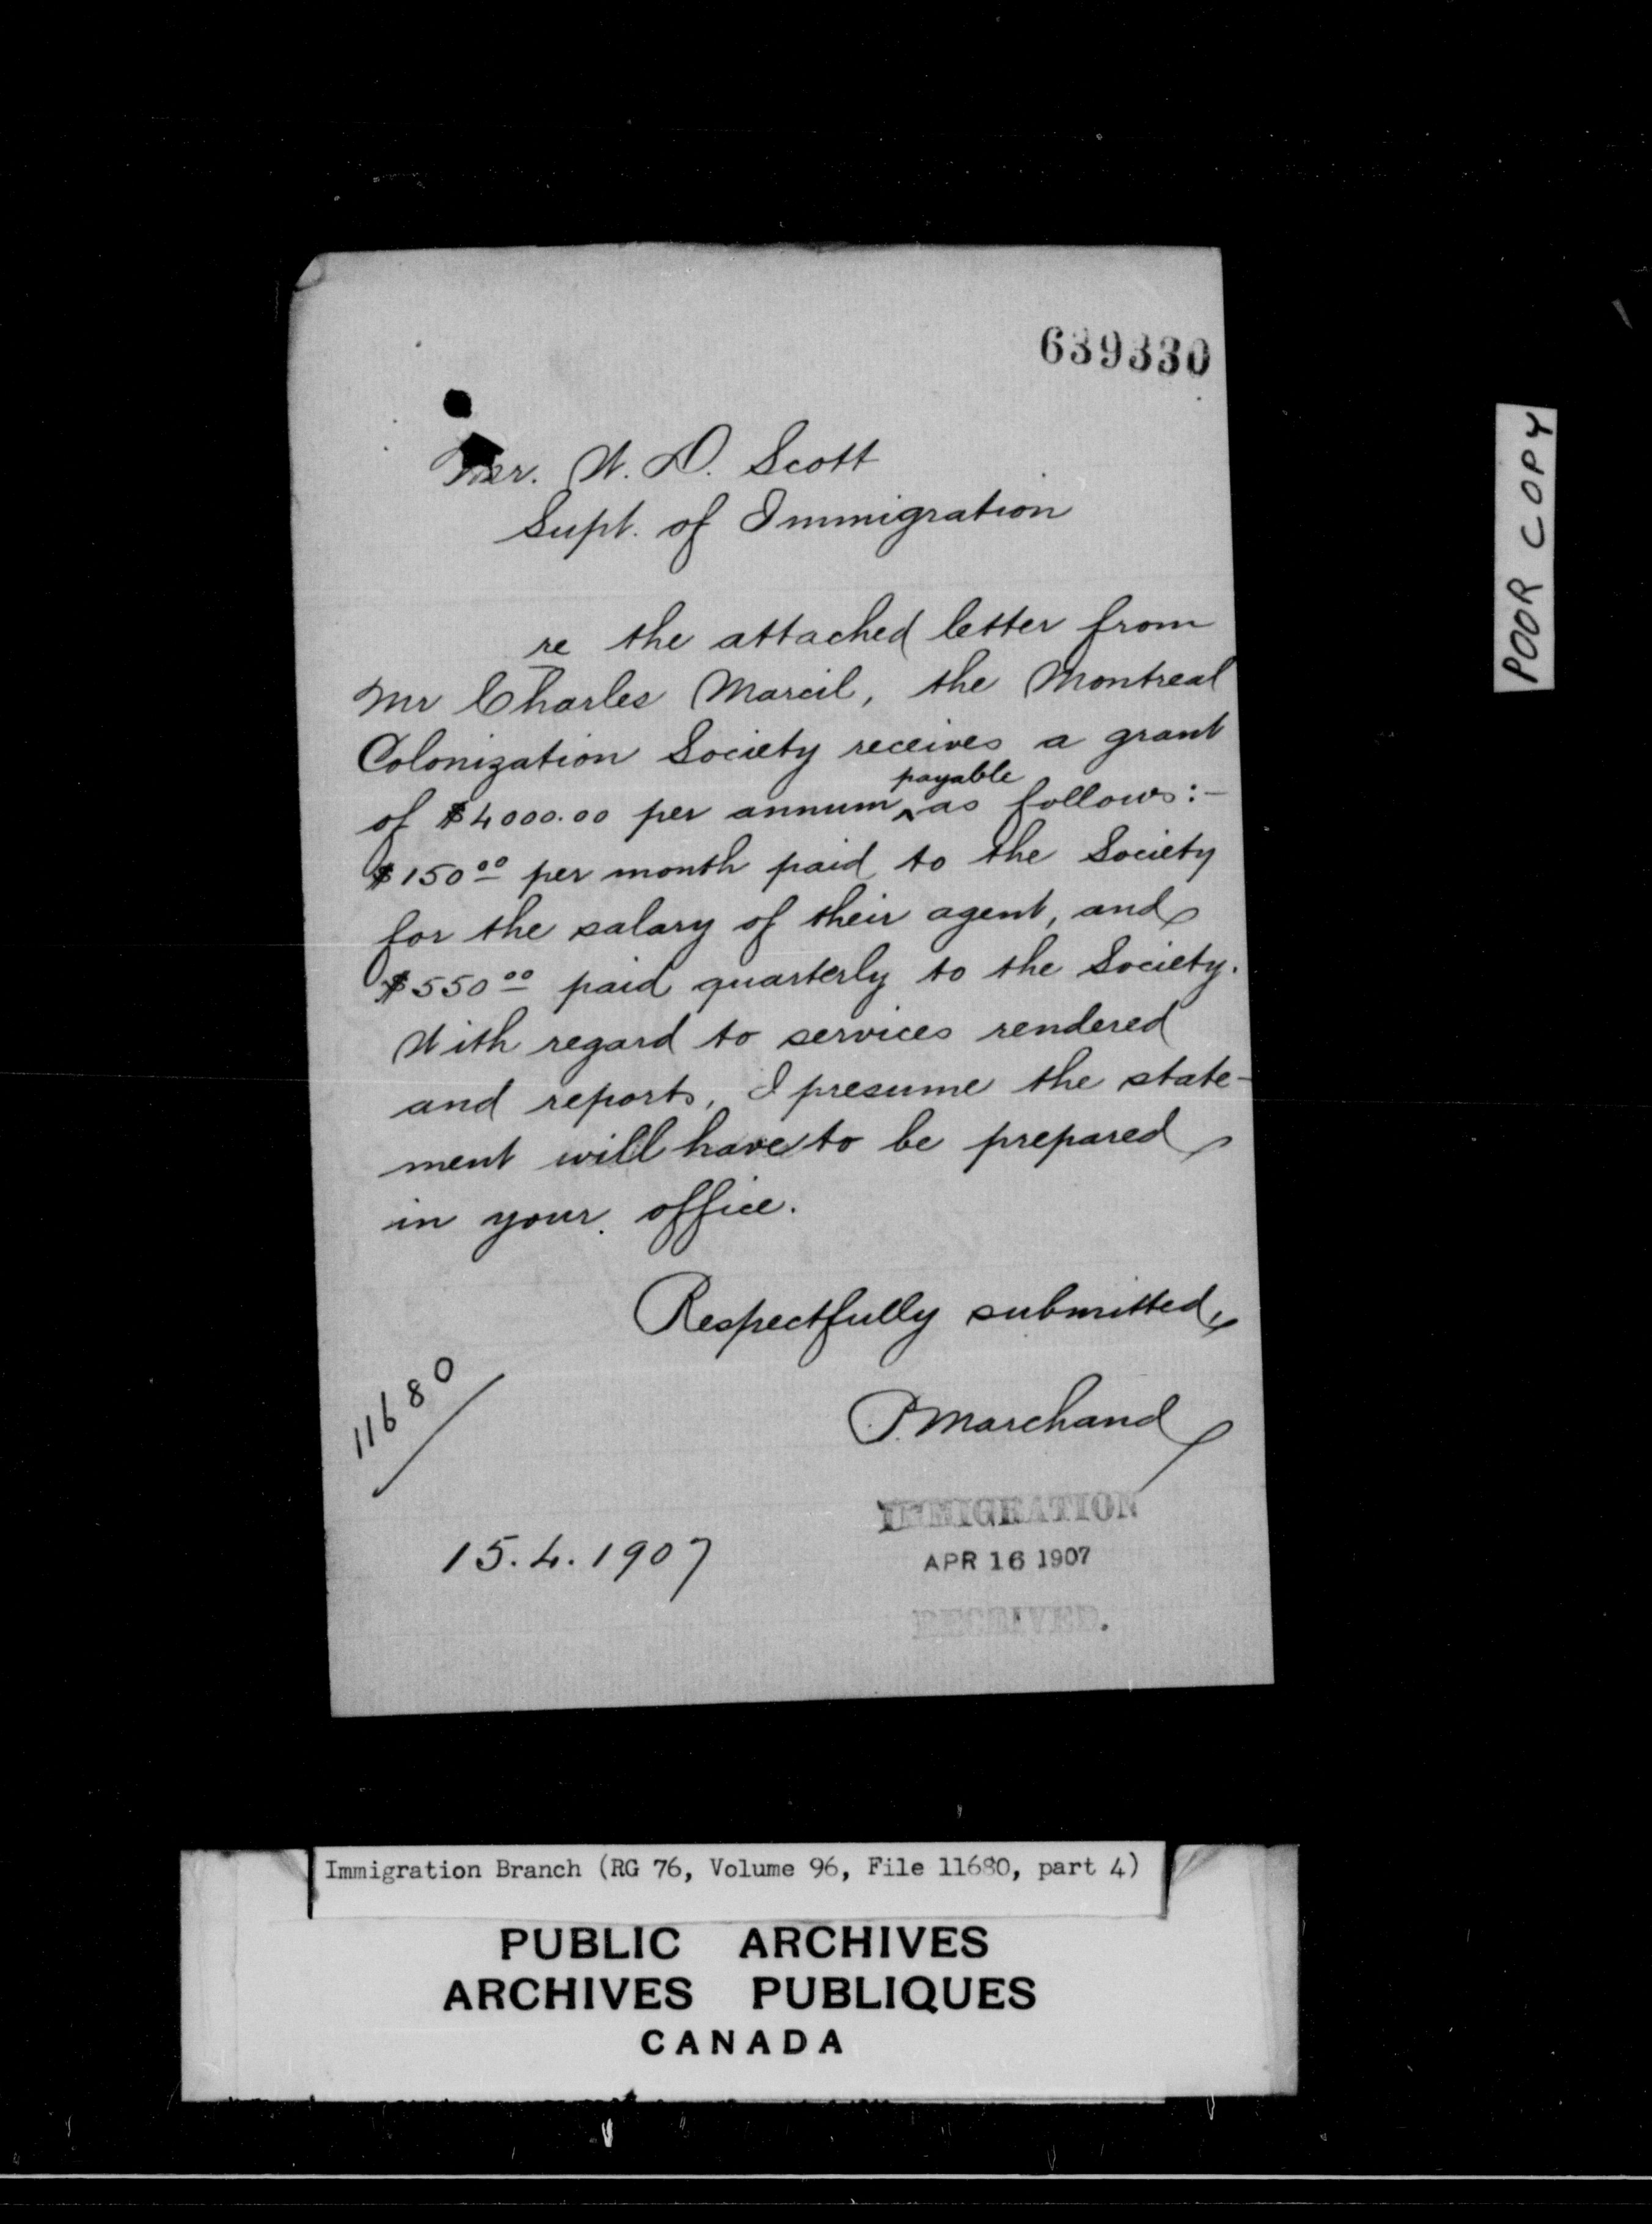 639330
Mr. W. D. Scott
Supt. of Immigration
re the attached letter from
Mr Charles Marcil, the Montreal
Colonization Society receives a grant
payable
of $4000.00 per annum ^ as follows:-
$150 00 per month paid to the Society
for the salary of their agent, and
$550 00 paid quarterly to the Society.
With regard to services rendered
and reports, I presume the state-
ment will have to be prepared
in your office.
Respectfully submitted,
P. Marchand
11680
15.4.1907
IMMIGRATION
APR 16 1907
RECEIVED.
POOR COPY
Immigration Branch (RG 76, Volume 96, File 11680, part 4)
PUBLIC ARCHIVES
ARCHIVES PUBLIQUES
CANADA